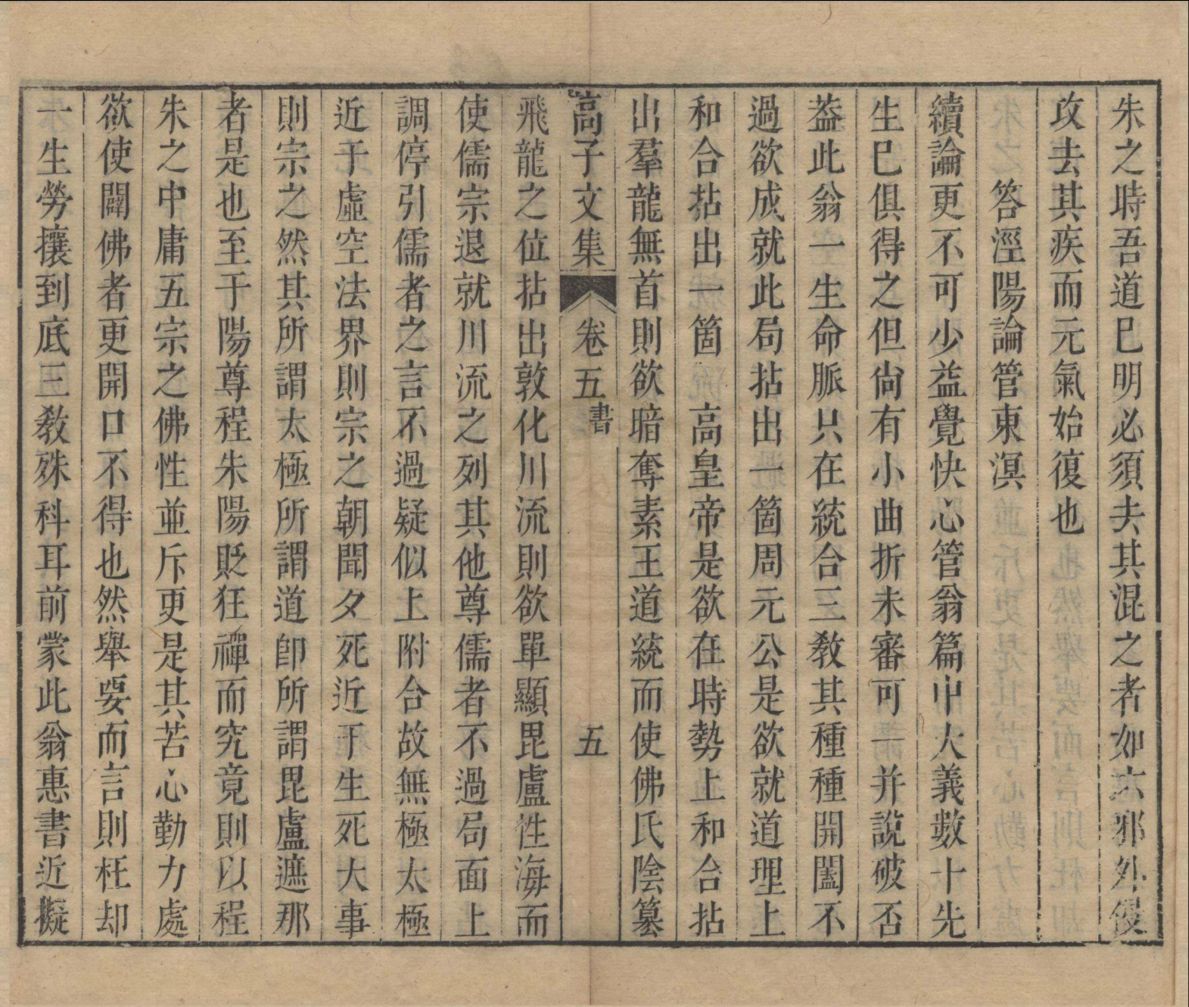 朱之時吾道已明必須去其混之者如六邪外侵
攻去其疾而元氣始復也
答涇陽論管東溟
續論更不可少益覺快心管翁篇中大義數十先
生已俱得之但尚有小曲折未審可一并說破否
葢此翁一生命脈只在統合三教其種種開闔不
過欲成就此局拈出一箇周元公是欲就道理上
和合拈出一箇 高皇帝是欲在時勢上和合拈
出羣龍無首則欲暗奪素王道統而使佛氏陰篡
高子文集 卷五 書 五
飛龍之位拈出敦化川流則欲單顯毘盧性海而
使儒宗退就川流之列其他尊儒者不過局面上
調停引儒者之言不過疑似上附合故無極太極
近于虛空法界則宗之朝聞夕死近于生死大事
則宗之然其所謂太極所謂道卽所謂毘盧遮那
者是也至于陽尊程朱陽貶狂禪而究竟則以程
朱之中庸五宗之佛性並斥更是其苦心勤力處
欲使闢佛者更開口不得也然舉要而言則枉却
一生勞攘到底三教殊科耳前蒙此翁惠書近擬